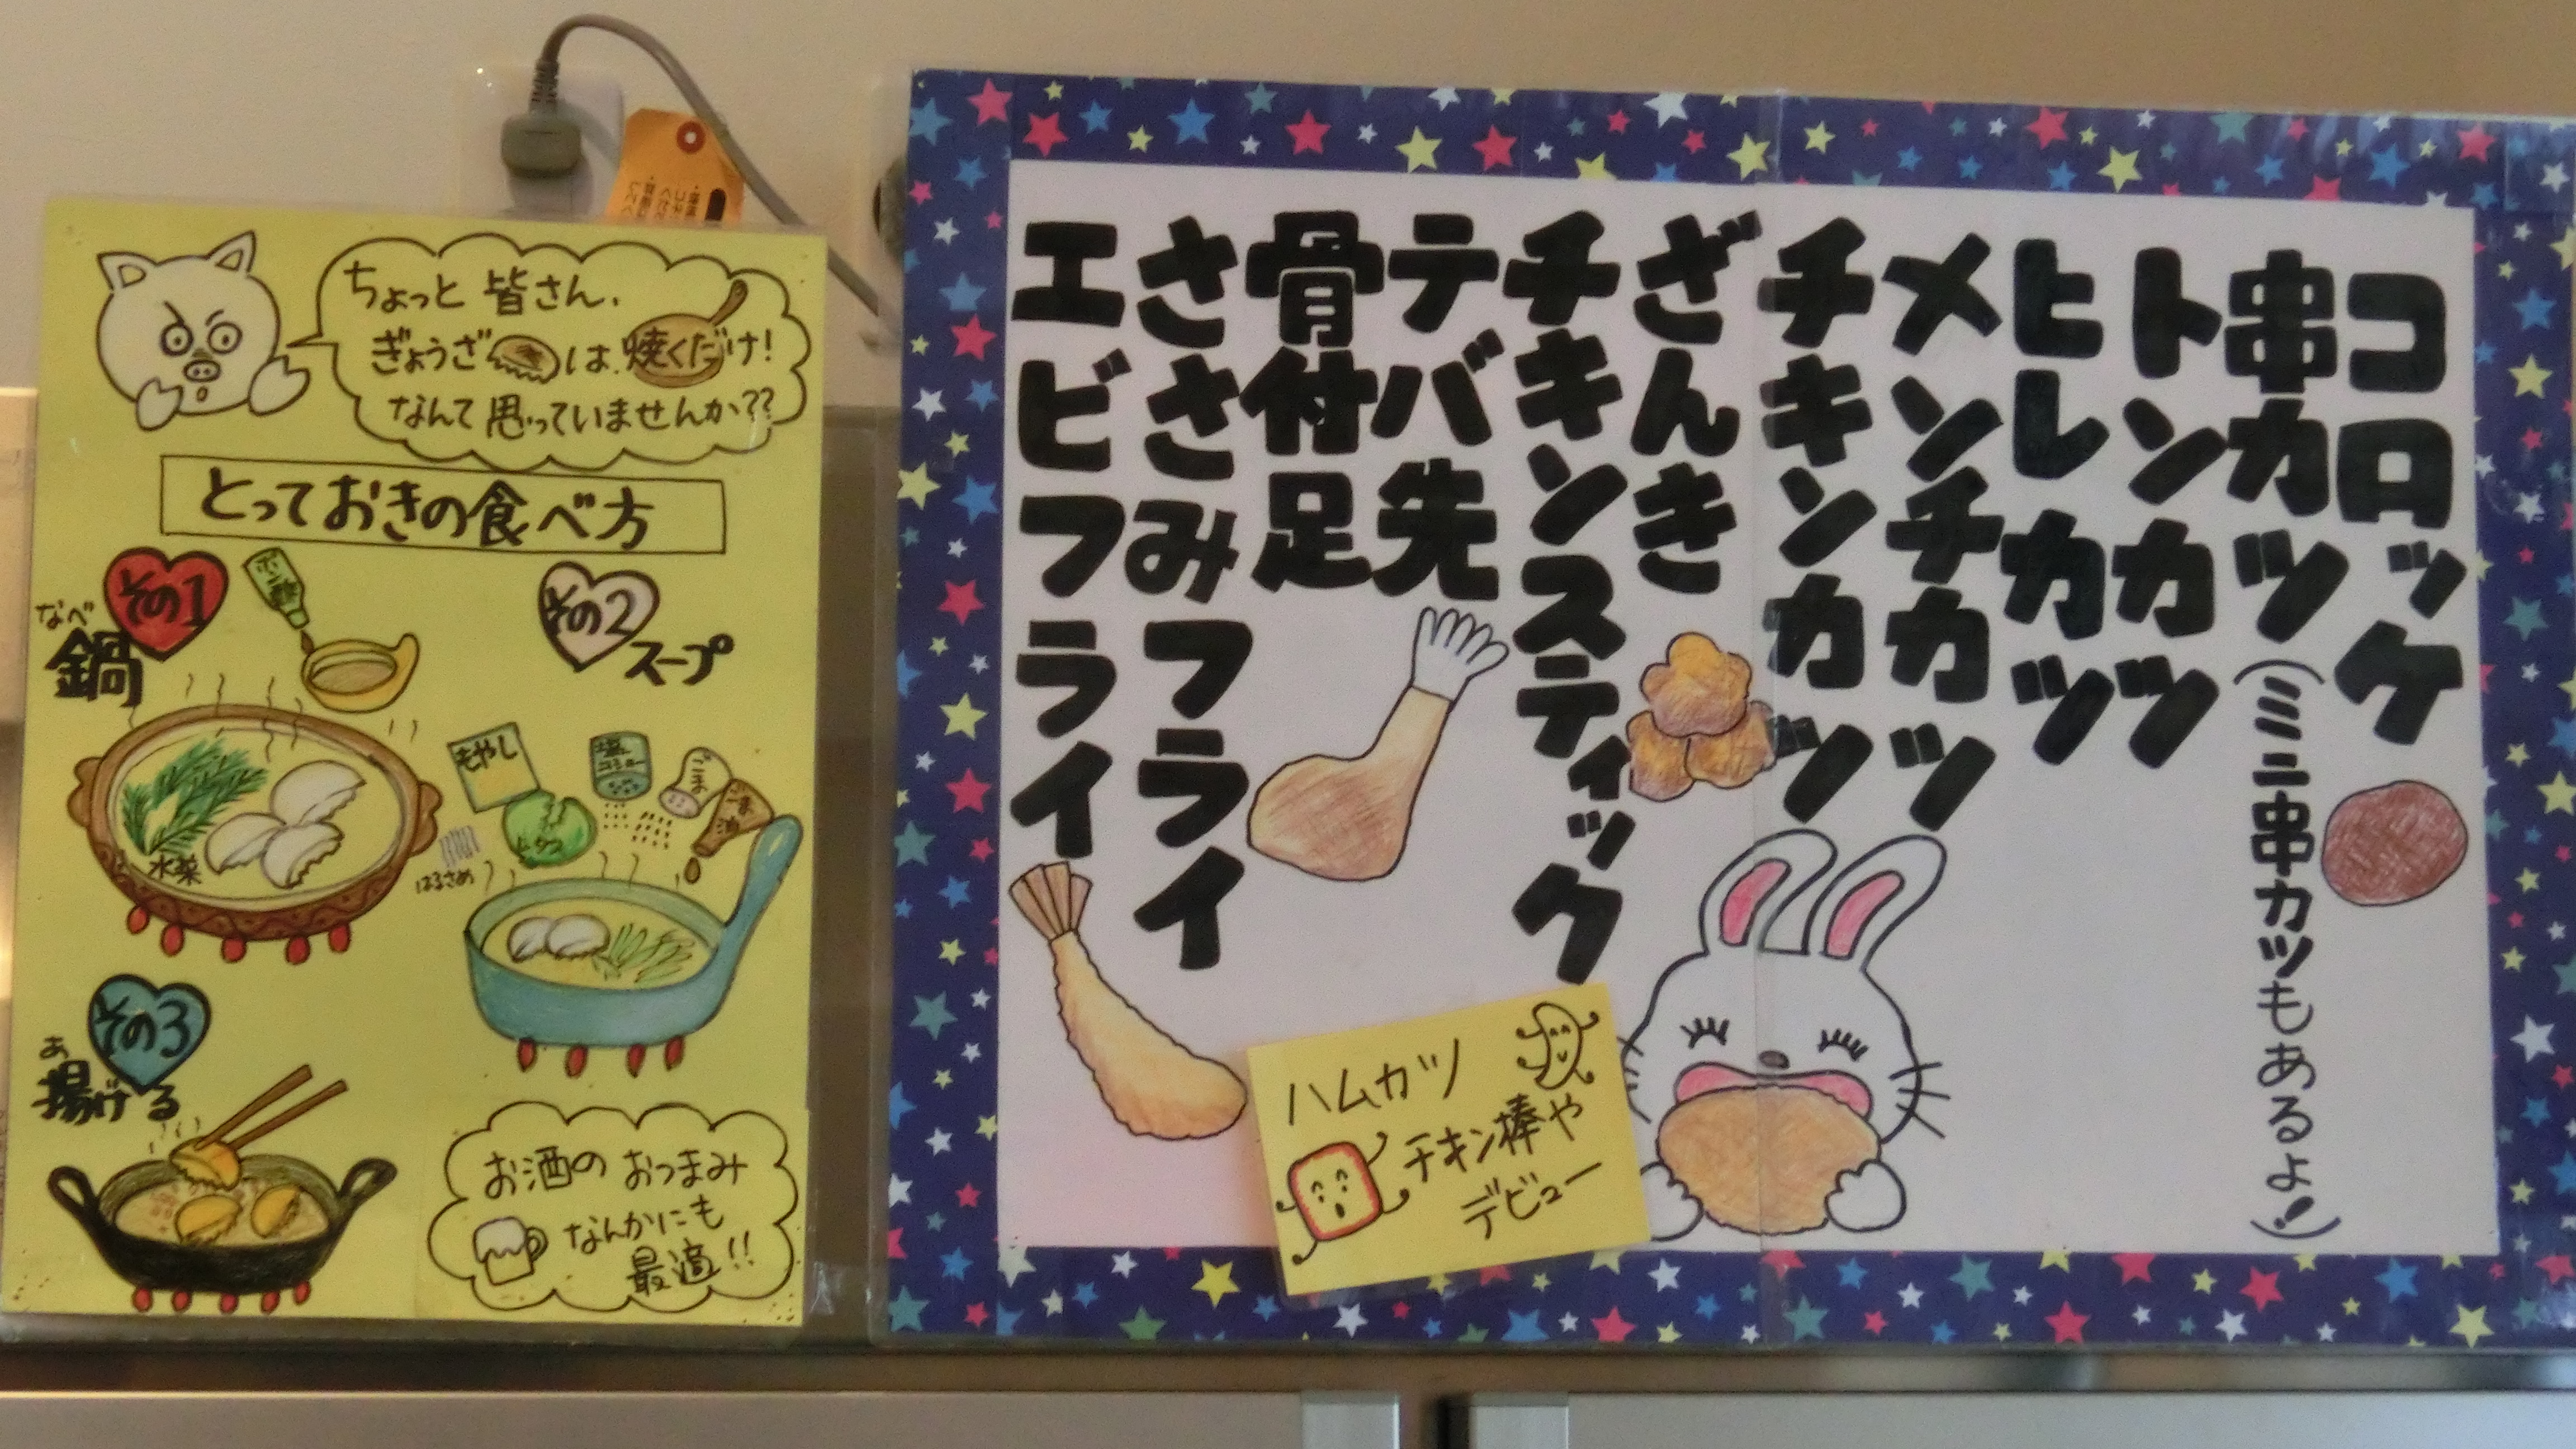 ちょっと皆さん、
ぎょうざは焼くだけ!
なんて思っていませんか??
とっておきの食べ方
その1
なべ
鍋
ポン酢
水菜
その2
スープ
もやし
塩コショー
ごま
ごま油
レタス
はるさめ
その3
あ
揚げる
お酒のおつまみ
なんかにも
最適!!
コロッケ
串カツ(ミニ串カツもあるよ!)
トンカツ
ヒレカツ
メンチカツ
チキンカツ
ざんき
チキンスティック
テバ先
骨付足
ささみフライ
エビフライ
ハムカツ
チキン棒や
デビュー